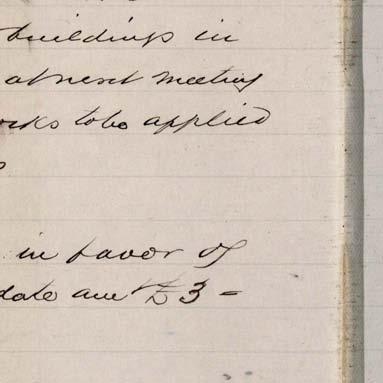 buildings in
at next meeting
to be applied
in favor of
date amt £3 -